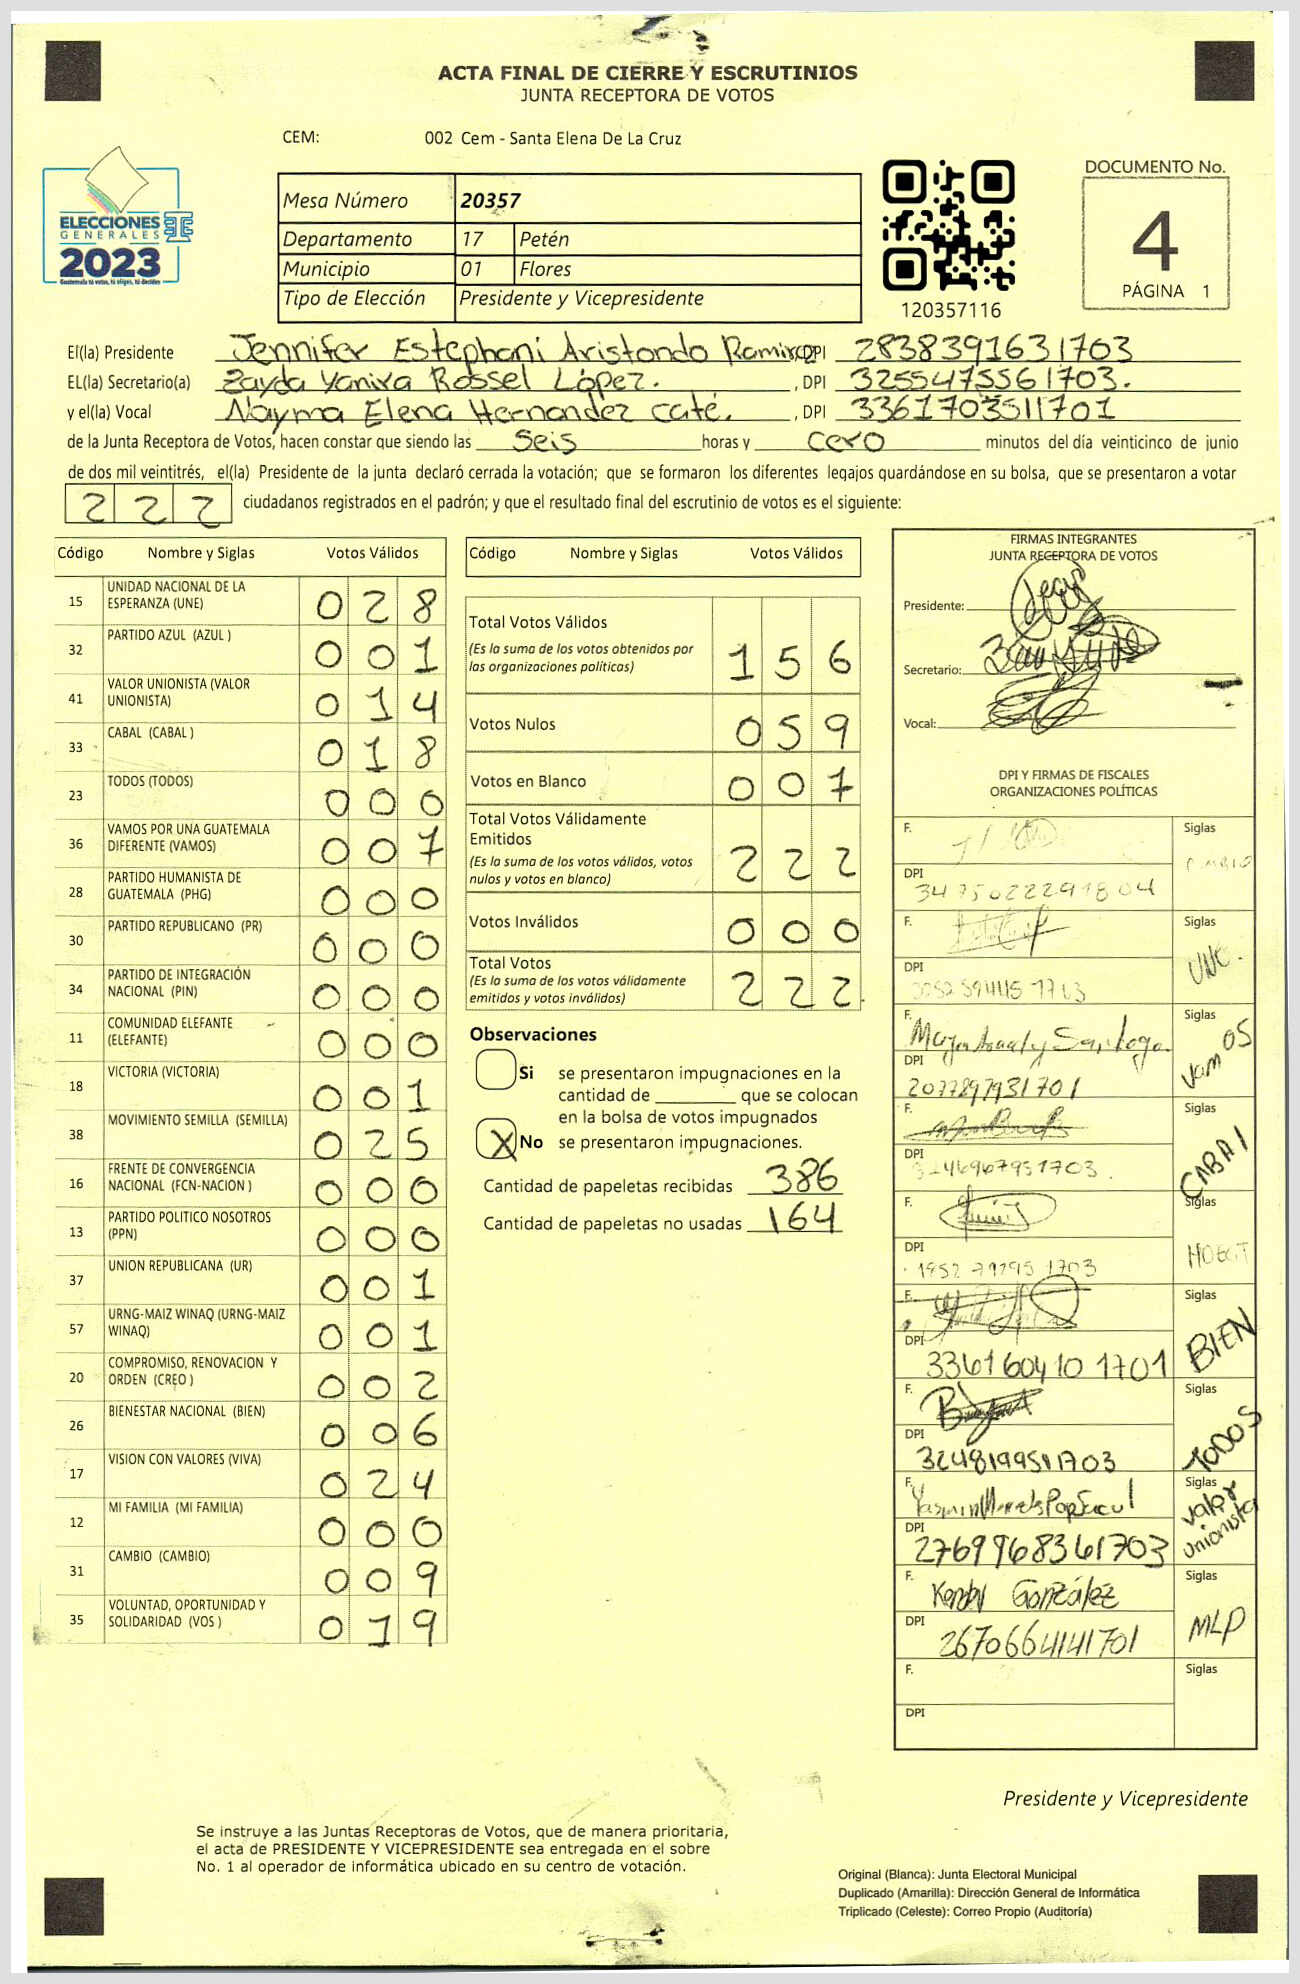 ACTA FINAL DE CIERRE Y ESCRUTINIOS
JUNTA RECEPTORA DE VOTOS
CEM: 002 Cem - Santa Elena De La Cruz
ELECCIONES
GENERALES
2023
Guatemala tú votas, tú eliges, tú decides
Mesa Número 20357
Departamento 17 Petén
Municipio 01 Flores
Tipo de Elección Presidente y Vicepresidente
120357116
DOCUMENTO No.
4
PÁGINA 1
El(la) Presidente Jennifer Estephani Aristondo Ramirez DPI 2838391631703
EL(la) Secretario(a) Zayda Yanira Rossel López. , DPI 3255475561703.
y el(la) Vocal Nayma Elena Hernandez Caté. , DPI 3361703511701
de la Junta Receptora de Votos, hacen constar que siendo las Seis horas y cero minutos del día veinticinco de junio
de dos mil veintitrés, el(la) Presidente de la junta declaró cerrada la votación; que se formaron los diferentes legajos quardándose en su bolsa, que se presentaron a votar
222 ciudadanos registrados en el padrón; y que el resultado final del escrutinio de votos es el siguiente:
Código Nombre y Siglas Votos Válidos
15 UNIDAD NACIONAL DE LA ESPERANZA (UNE) 028
32 PARTIDO AZUL (AZUL ) 001
41 VALOR UNIONISTA (VALOR UNIONISTA) 014
33 CABAL (CABAL ) 018
23 TODOS (TODOS) 000
36 VAMOS POR UNA GUATEMALA DIFERENTE (VAMOS) 007
28 PARTIDO HUMANISTA DE GUATEMALA (PHG) 000
30 PARTIDO REPUBLICANO (PR) 000
34 PARTIDO DE INTEGRACIÓN NACIONAL (PIN) 000
11 COMUNIDAD ELEFANTE (ELEFANTE) 000
18 VICTORIA (VICTORIA) 001
38 MOVIMIENTO SEMILLA (SEMILLA) 025
16 FRENTE DE CONVERGENCIA NACIONAL (FCN-NACION ) 000
13 PARTIDO POLITICO NOSOTROS (PPN) 000
37 UNION REPUBLICANA (UR) 001
57 URNG-MAIZ WINAQ (URNG-MAIZ WINAQ) 001
20 COMPROMISO, RENOVACION Y ORDEN (CREO ) 002
26 BIENESTAR NACIONAL (BIEN) 006
17 VISION CON VALORES (VIVA) 024
12 MI FAMILIA (MI FAMILIA) 000
31 CAMBIO (CAMBIO) 009
35 VOLUNTAD, OPORTUNIDAD Y SOLIDARIDAD (VOS ) 019
Código Nombre y Siglas Votos Válidos
Total Votos Válidos 156
(Es la suma de los votos obtenidos por
las organizaciones políticas)
Votos Nulos 059
Votos en Blanco 007
Total Votos Válidamente
Emitidos 222
(Es la suma de los votos válidos, votos
nulos y votos en blanco)
Votos Inválidos 000
Total Votos 222
(Es la suma de los votos válidamente
emitidos y votos inválidos)
Observaciones
Si se presentaron impugnaciones en la
cantidad de ________ que se colocan
en la bolsa de votos impugnados
X No se presentaron impugnaciones.
Cantidad de papeletas recibidas 386
Cantidad de papeletas no usadas 164
FIRMAS INTEGRANTES
JUNTA RECEPTORA DE VOTOS
Presidente:
Secretario:
Vocal:
DPI Y FIRMAS DE FISCALES
ORGANIZACIONES POLÍTICAS
F. Siglas
DPI
F. Siglas UNE.
DPI
F. Siglas Vamos
DPI 2077897931701
F. Siglas CABAL
DPI
F. Siglas
DPI
F. Siglas BIEN
DPI 3361604101701
F. Siglas TODOS
DPI 3248199511703
F. Siglas Valor unionista
DPI 2769968361703
F. González Siglas MLP
DPI 2670664141701
F. Siglas
DPI
Presidente y Vicepresidente
Se instruye a las Juntas Receptoras de Votos, que de manera prioritaria,
el acta de PRESIDENTE Y VICEPRESIDENTE sea entregada en el sobre
No. 1 al operador de informática ubicado en su centro de votación.
Original (Blanca): Junta Electoral Municipal
Duplicado (Amarilla): Dirección General de Informática
Triplicado (Celeste): Correo Propio (Auditoría)